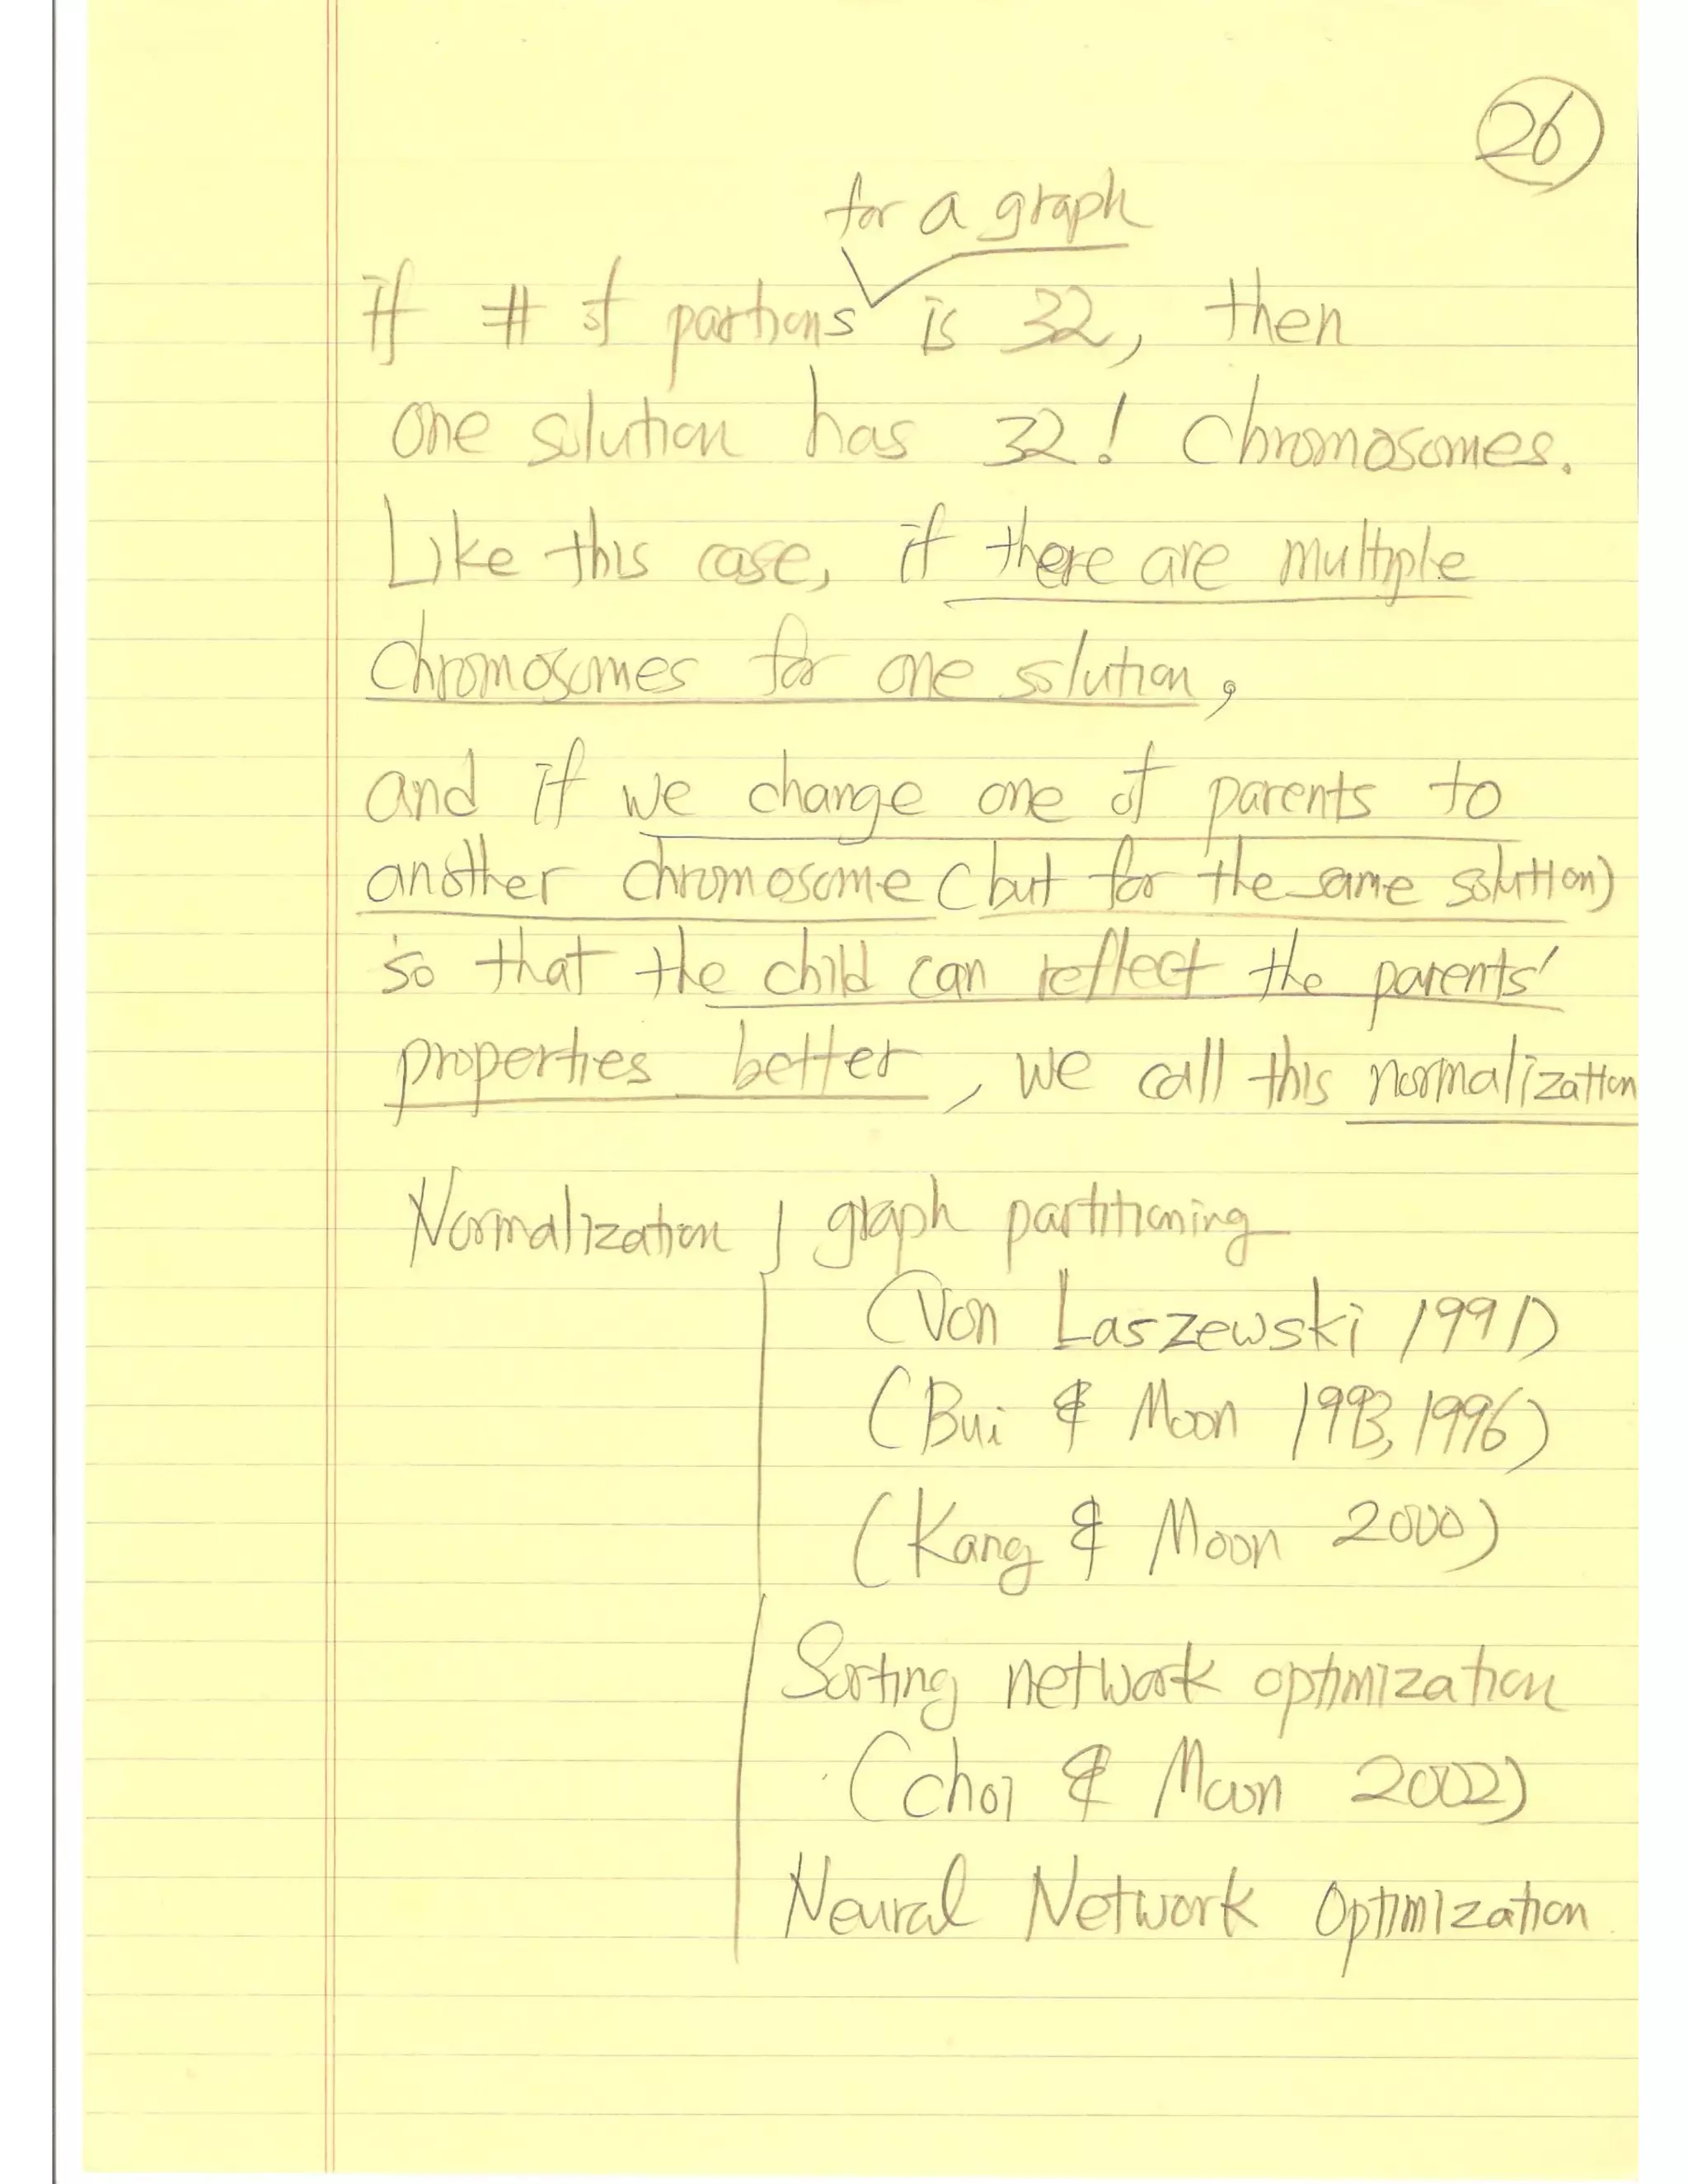 26
for a graph
if # of partions is 32, then
one solution has 32! chromosomes.
Like this case, if there are multiple
chromosomes for one solution,
and if we change one of parents to
another chromosome (but for the same solution)
so that the child can reflect the parents'
properties better, we call this normalization
Normalization } graph partitioning
(Von Laszewski 1991)
(Bui & Moon 1993, 1996)
(Kang & Moon 2000)
Sorting network optimization
(choi & Moon 2002)
Neural Network Optimization